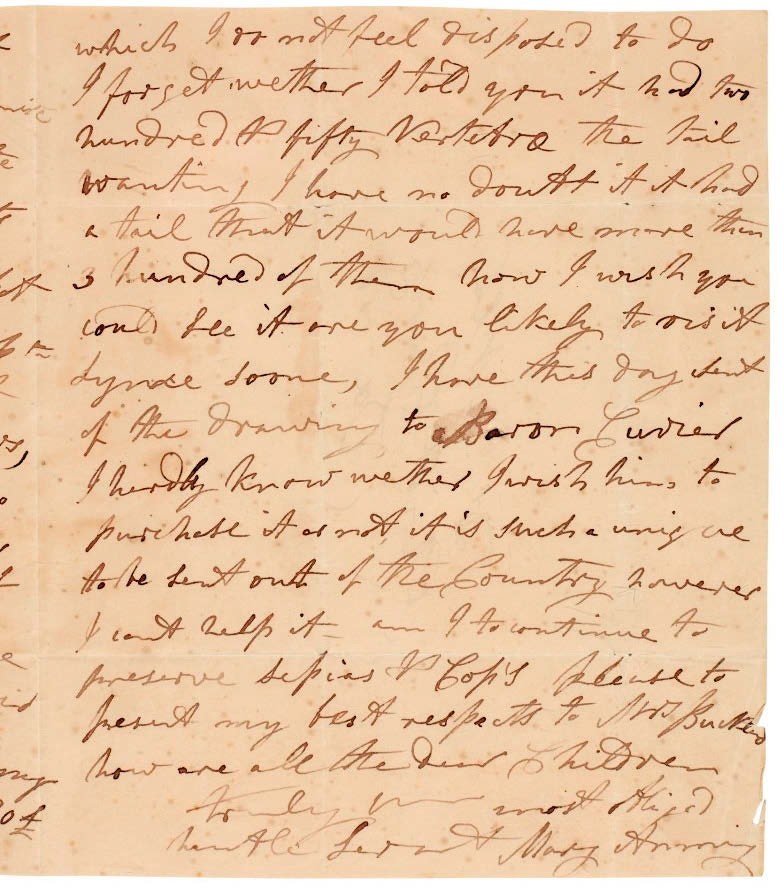 which I do not feel disposed to do
I forget wether I told you it had two
hundred & fifty Vertebræ the tail
wanting I have no doubt if it had
a tail that it would have more than
3 hundred of them how I wish you
could see it are you likely to visit
Lyme soone, I have this day sent
of the drawing to Baron Cuvier
I herdly know wether I wish him to
purchase it or not it is such a unique
to be sent out of the Country however
I cant help it – am I to continue to
preserve sepias & Cop's please to
present my best respects to Mrs Buckland
how are all the dear Children
truly your most obliged
humble Servant Mary Anning